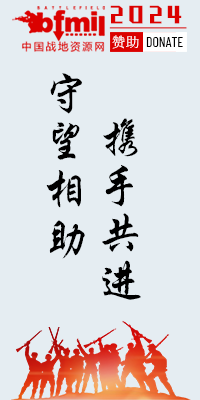 BATTLEFIELD
bfmil
中国战地资源网
2024
赞助 DONATE
守望相助
携手共进